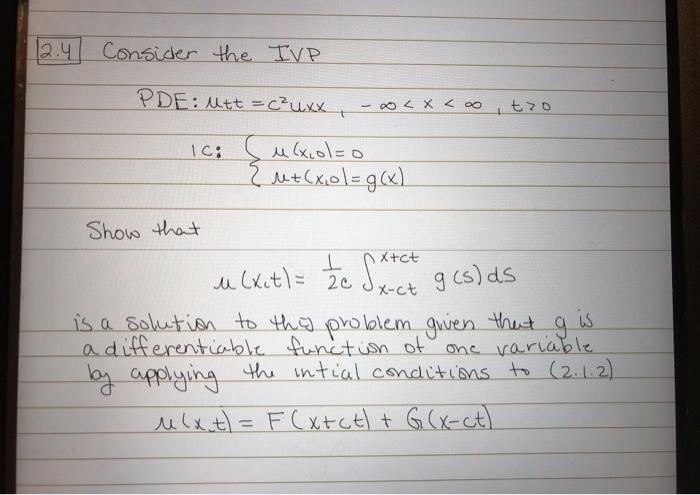 2.4 Consider the IVP
PDE: utt = c²uxx, -∞ < x < ∞, t>0
IC: { u(x,0)=0
{ ut(x,0)=g(x)
Show that
u(x,t) = 1/2c ∫ x+ct x-ct g(s)ds
is a solution to this problem given that g is
a differentiable function of one variable
by applying the intial conditions to (2.1.2)
u(x,t) = F(x+ct) + G(x-ct)